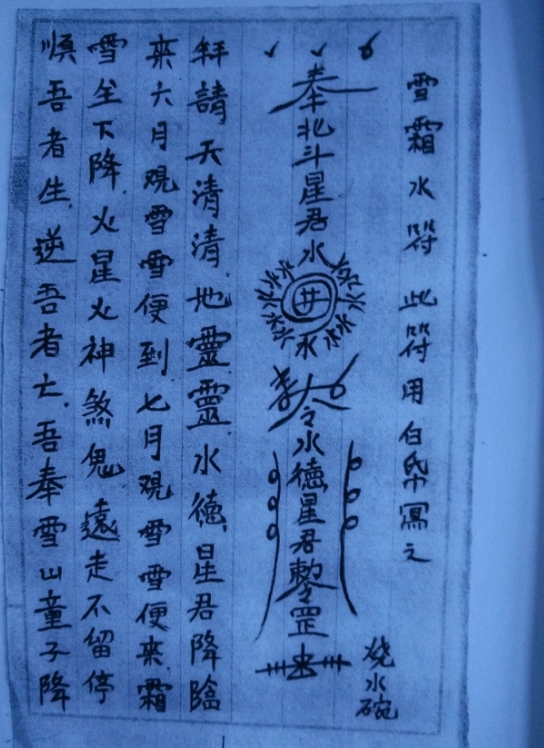 雪霜水符 此符用白帋寫之
燒水碗
奉北斗星君水
井
水
令水德星君敕罡
拜請天清清地靈靈水德星君降臨
來六月观雪雪便到七月观雪雪便来霜
雪坒下降火星火神煞鬼遠走不留停
順吾者生逆吾者亡吾奉雪山童子降